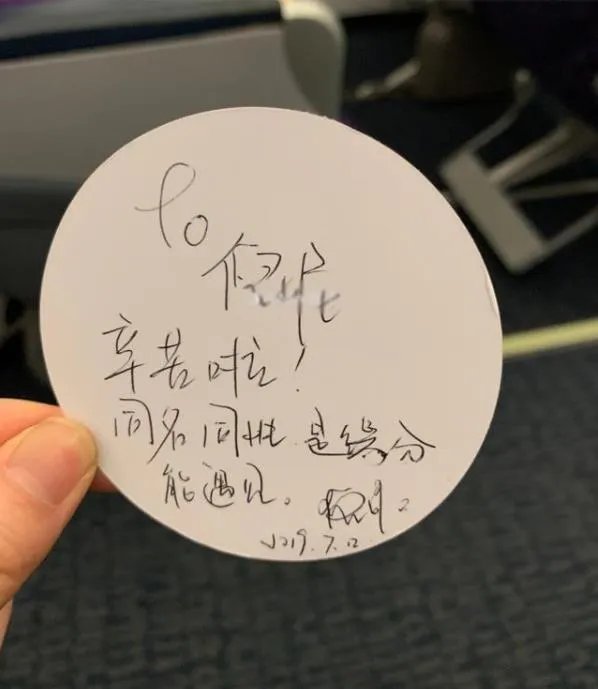 To
辛苦啦！
同名同姓是缘分
能遇见。
2019.7.12